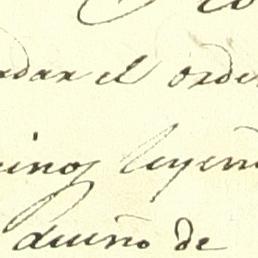 rdar el orde
inos leyen
dueño de